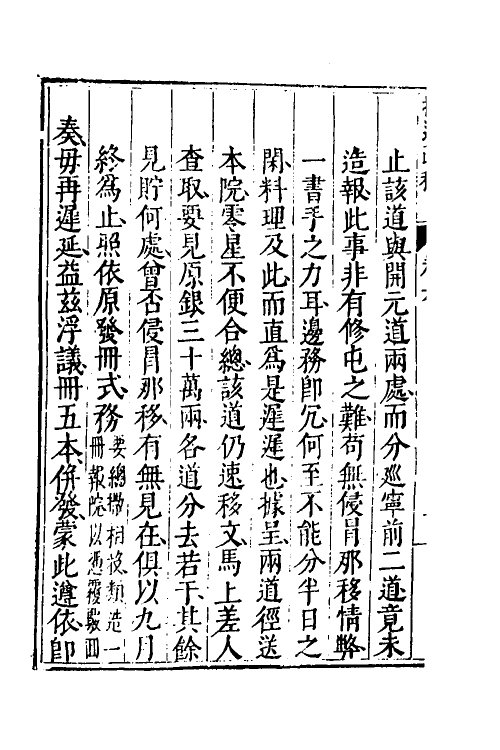 止該道與開元道兩處而分廵寧前二道竟未
造報此事非有修屯之難苟無侵冐那移情弊
一書手之力耳邊務卽冗何至不能分半日之
閑料理及此而直爲是遲遲也據呈兩道徑送
本院零星不便合總該道仍速移文馬上差人
查取要見原銀三十萬兩各道分去若干其餘
見貯何處曾否侵冐那移有無見在俱以九月
終爲止照依原發冊式務要總撒相投類造一冊報院以憑覆驗回
奏毋再遲延益兹浮議冊五本併發蒙此遵依卽